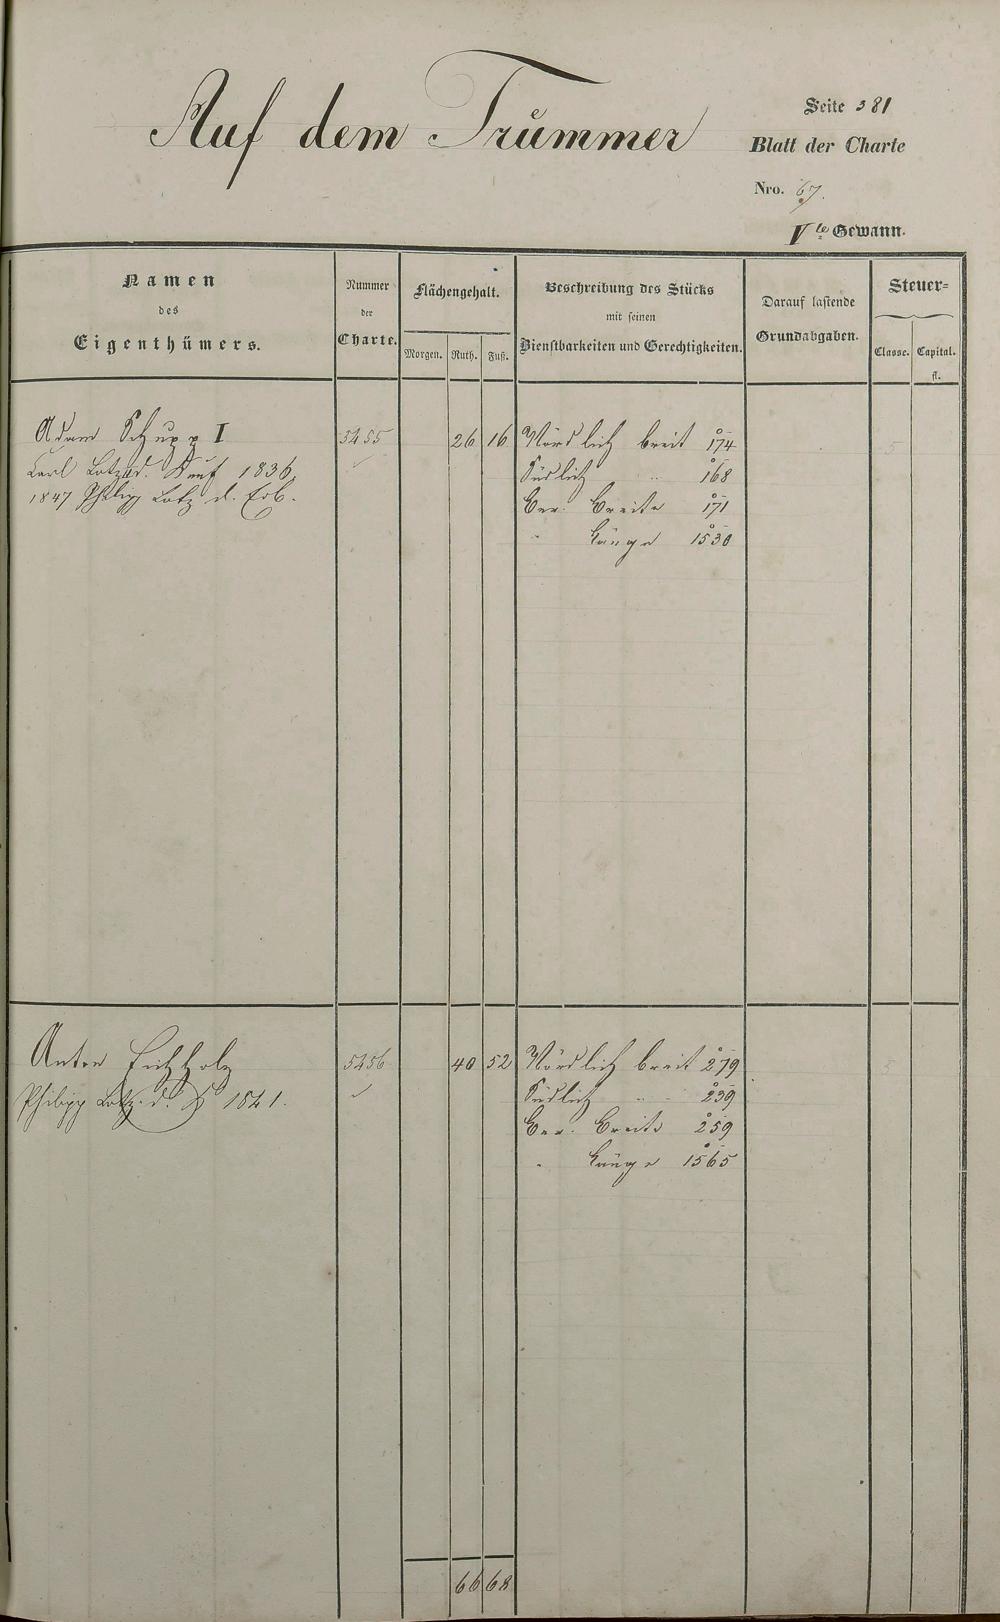 Auf dem Trümmer
Seite 381
Blatt der Charte
Nro. 67.
Vte Gewann.
Namen
des
Eigenthümers.
Nummer
der
Charte.
Flächengehalt.
Morgen. Ruth. Fuß.
Beschreibung des Stücks
mit seinen
Dienstbarkeiten und Gerechtigkeiten.
Darauf lastende
Grundabgaben.
Steuer=
Classe. Capital.
fl.
Adam Schupp I 5455 26 16 Nördlich breit 174 5
Carl Lotz d. Kauf 1836. Südlich " 168
1847 Philipp Lotz d. Erb. Ber. Breite 171
" Länge 1530
Anton Eichholz 5456 40 52 Nördlich breit 279 5
Philipp Lotz d. K 1841. Südlich " 239
Ber. Breite 259
" Länge 1565
66 68